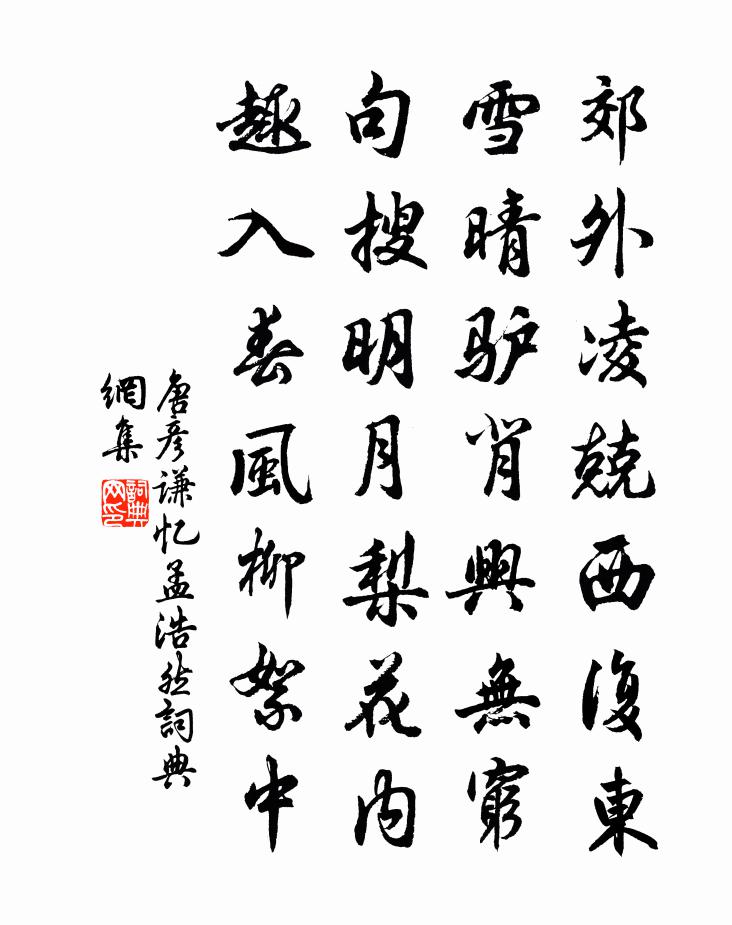 郊外凌兢西復東
雪晴驴背興無窮
句搜明月梨花内
趣入春風柳絮中
唐彦谦忆孟浩然詞典
網集
詞典
网印